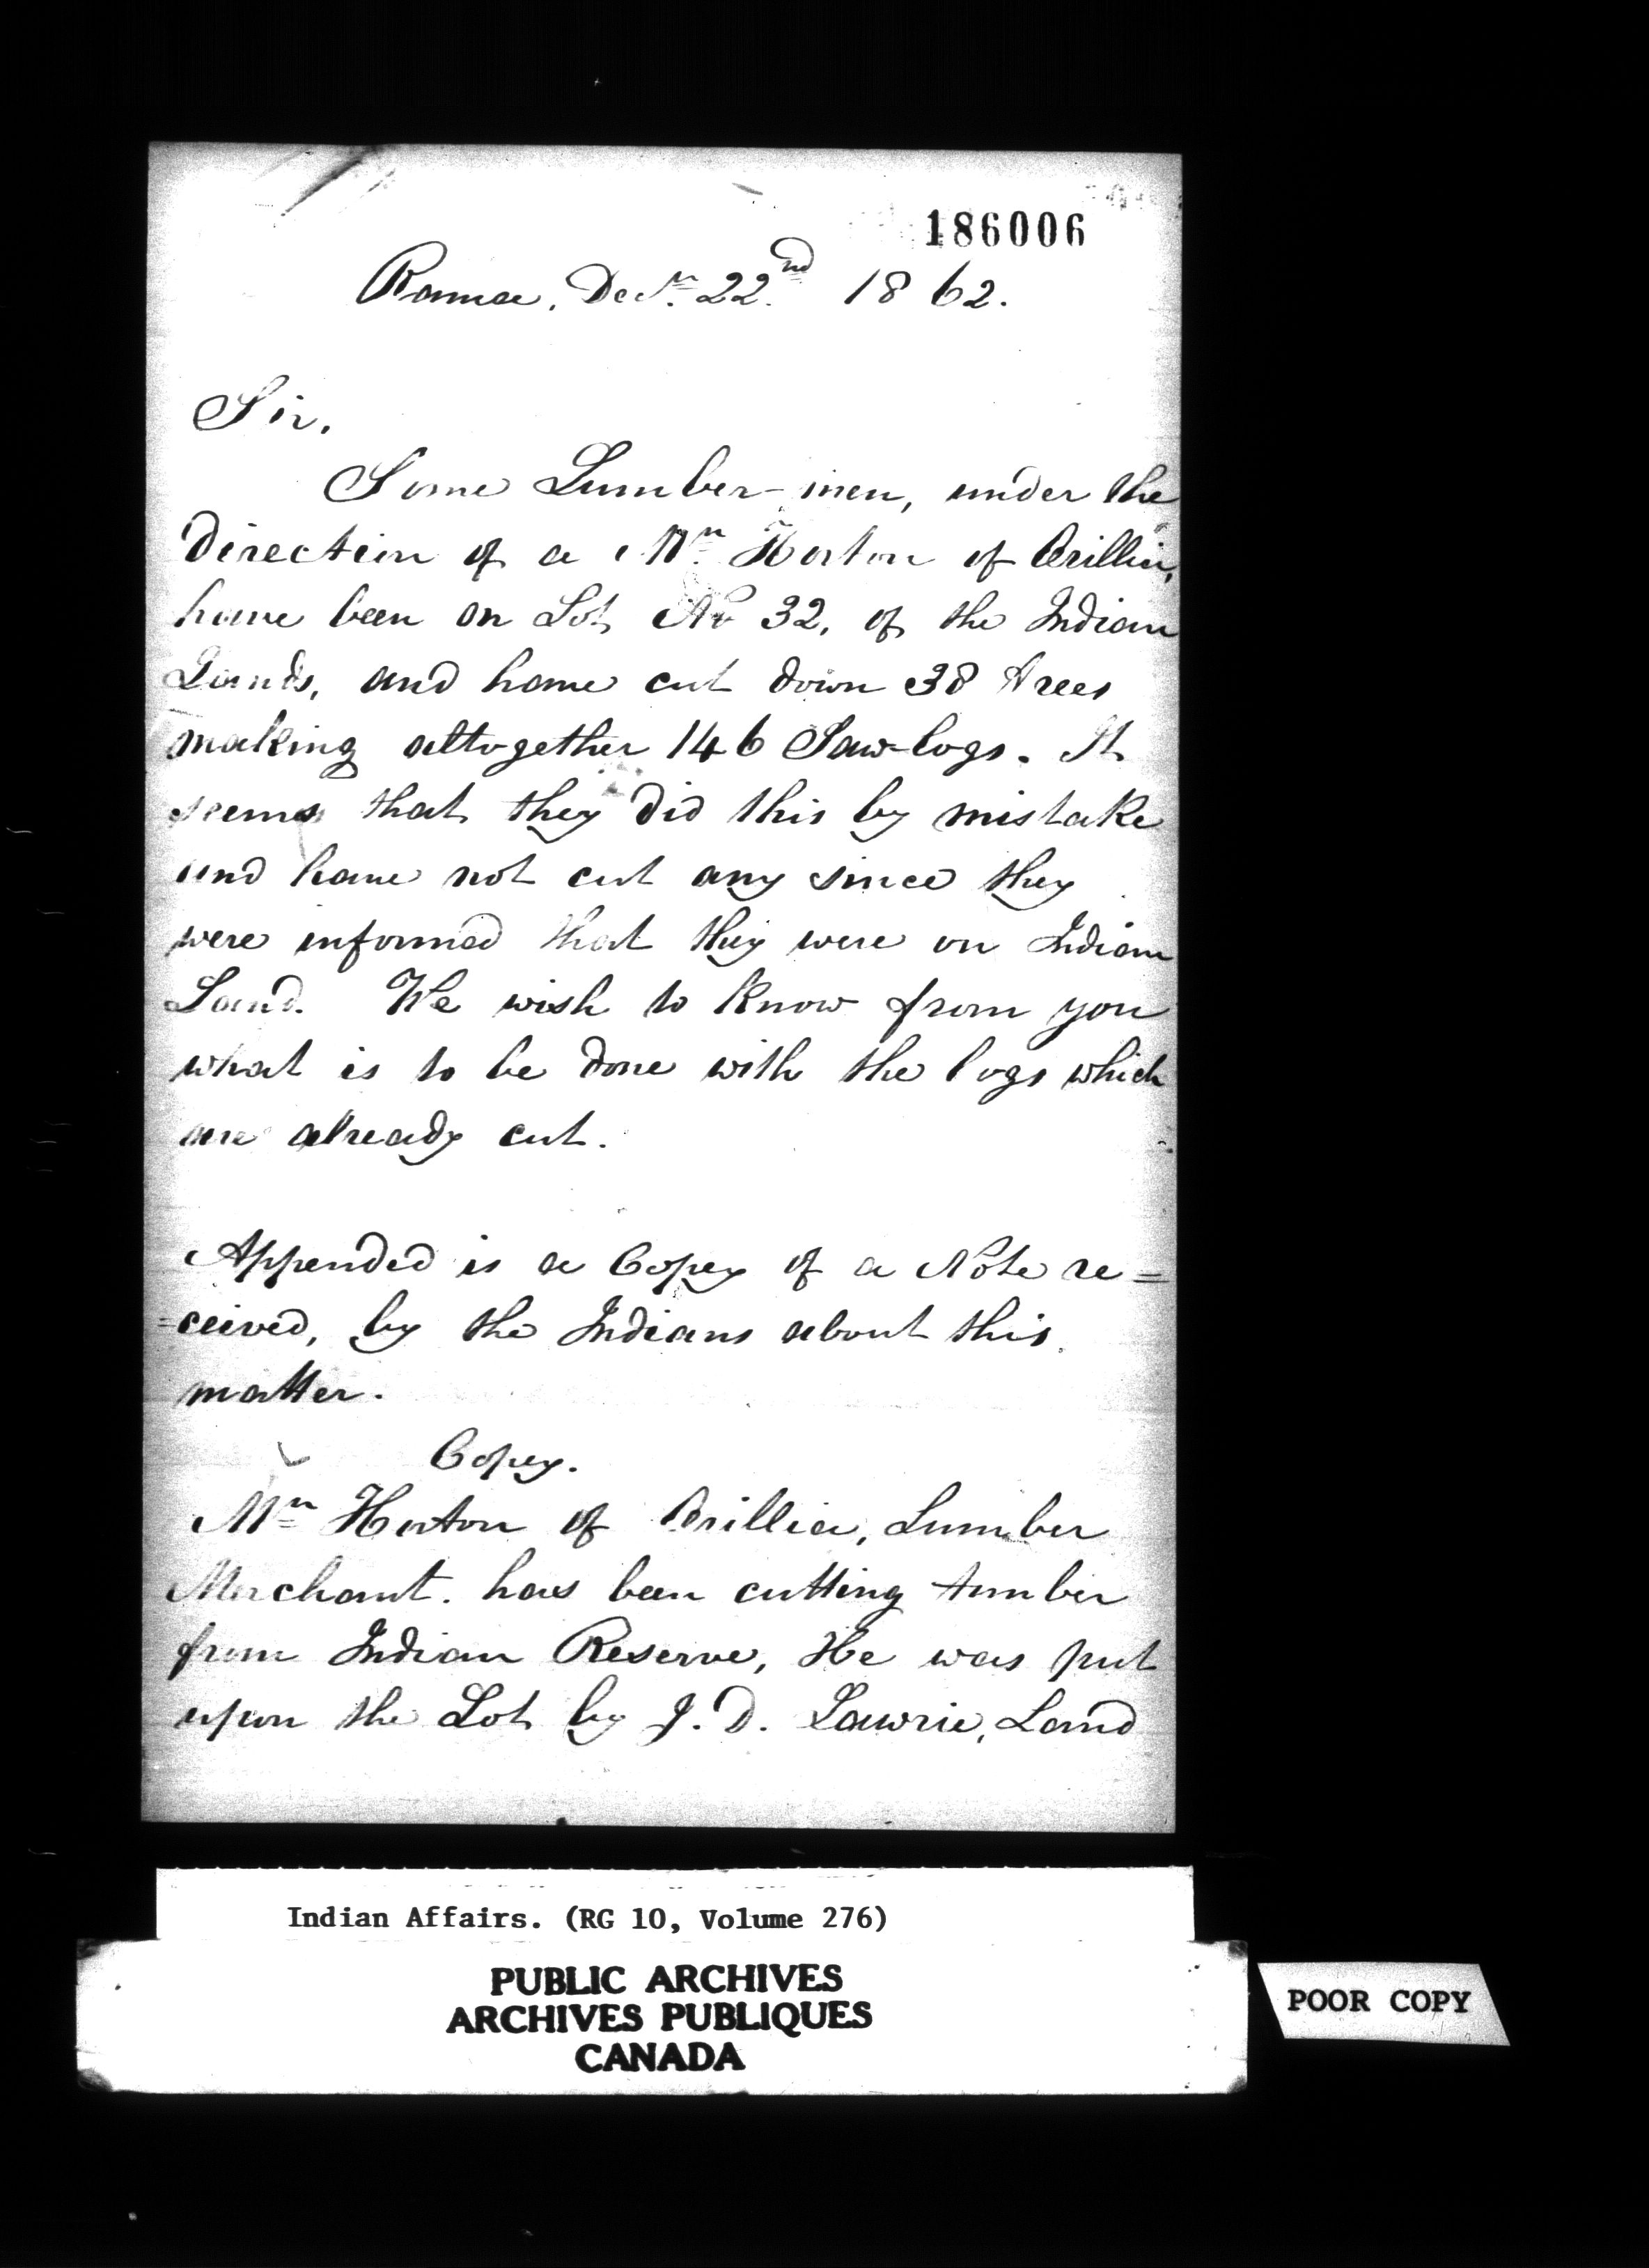 186006
Rama, Decr. 22nd 1862.
Sir,
Some Lumber-men, under the
direction of a Mr. Horton of Orillia,
have been on Lot No 32, of the Indian
Lands, and have cut down 38 trees
making altogether 146 Saw-logs. It
seems that they did this by mistake
and have not cut any since they
were informed that they were on Indian
Land. We wish to know from you
what is to be done with the logs which
are already cut.
Appended is a Copy of a Note re=
=ceived, by the Indians about this
matter.
Copy.
Mr. Horton of Orillia, Lumber
Merchant. has been cutting timber
from Indian Reserve, He was put
upon the Lot by J. D. Lawrie, Land
Indian Affairs. (RG 10, Volume 276)
PUBLIC ARCHIVES
ARCHIVES PUBLIQUES
CANADA
POOR COPY